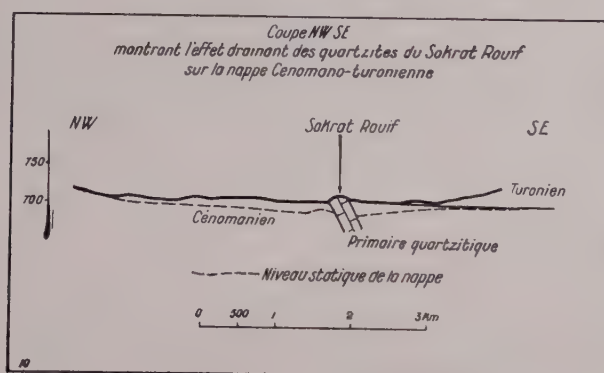 Coupe NW SE
montrant l'effet drainant des quartzites du Sokrat Rouif
sur la nappe Cenomano-turonienne
NW
Sokrat Rouif
SE
750
700
Turonien
Cénomanien
Primaire quartzitique
Niveau statique de la nappe
0 500 1 2 3 Km